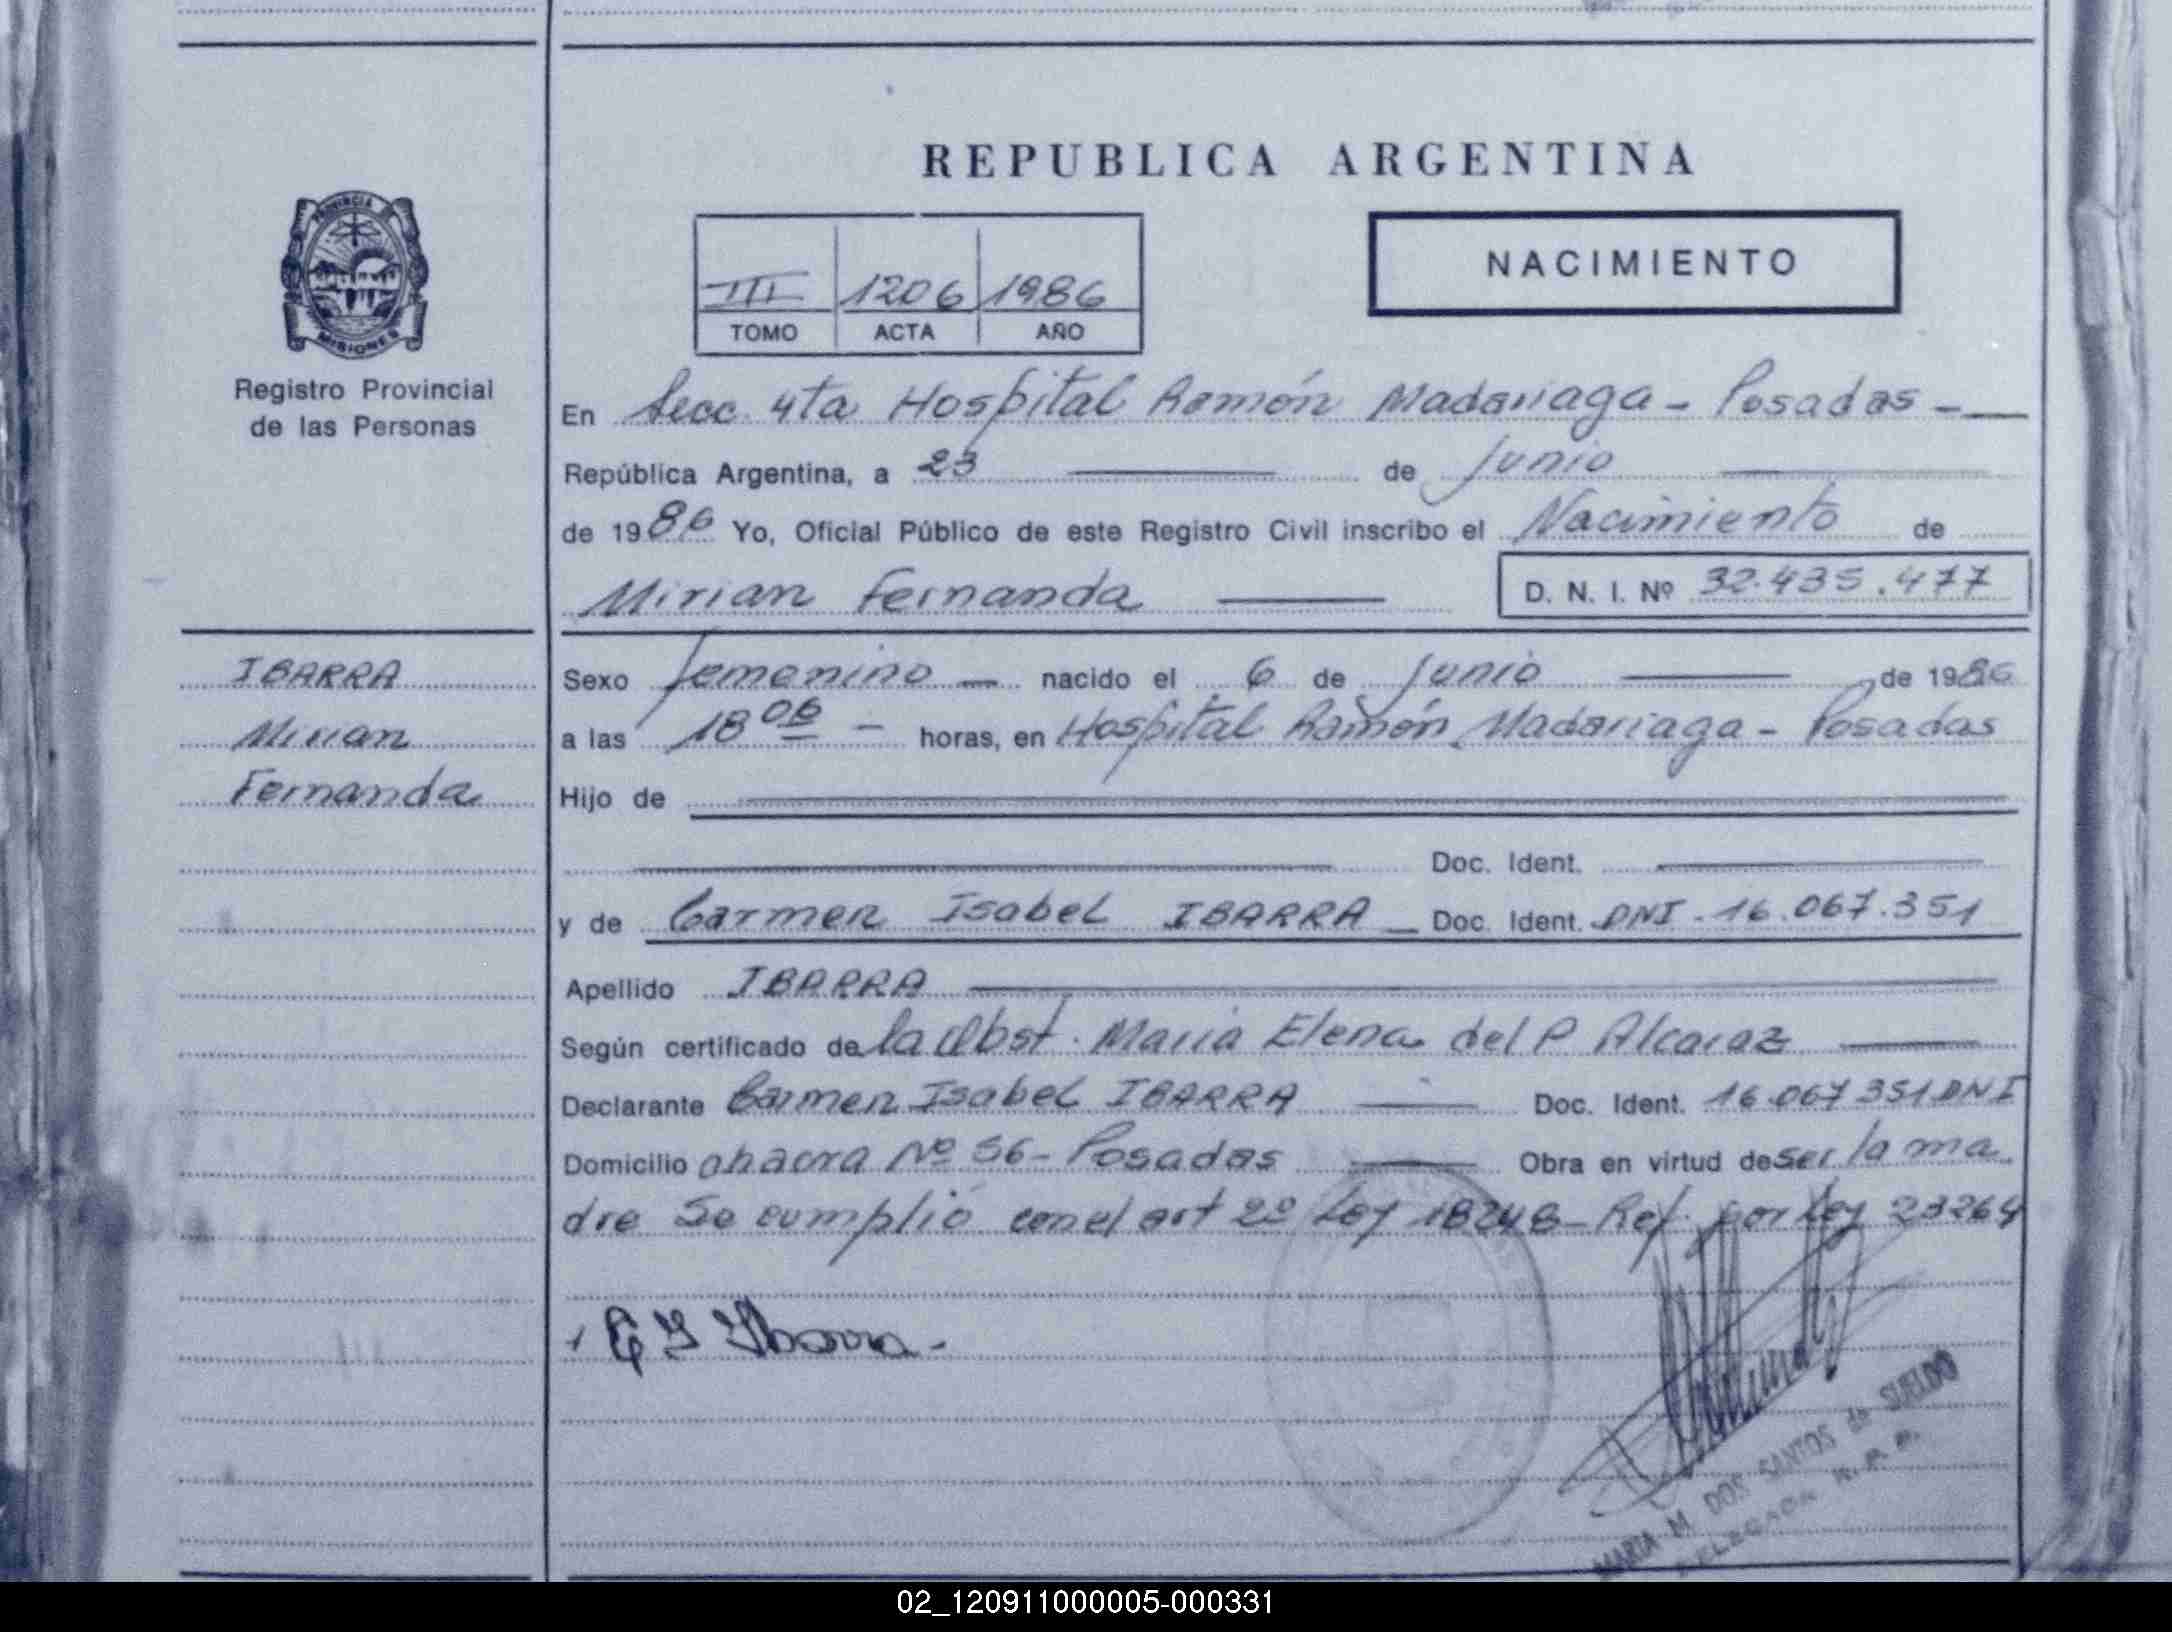 REPUBLICA ARGENTINA
PROVINCIA DE
MISIONES
Registro Provincial
de las Personas
NACIMIENTO
III 1206 1986
TOMO ACTA AÑO
En Secc. 4ta Hospital Ramón Madariaga - Posadas -
República Argentina, a 23 de Junio
de 1986 Yo, Oficial Público de este Registro Civil inscribo el Nacimiento de
Mirian Fernanda D. N. I. Nº 32.435.477
IBARRA
Mirian
Fernanda
Sexo femenino - nacido el 6 de Junio de 1986
a las 18 06 - horas, en Hospital Ramón Madariaga - Posadas
Hijo de
Doc. Ident.
y de Carmen Isabel IBARRA Doc. Ident. DNI - 16.067.351
Apellido IBARRA
Según certificado de la Obst. Maria Elena del P Alcaraz
Declarante Carmen Isabel IBARRA Doc. Ident. 16.067 351 DNI
Domicilio chacra Nº 56 - Posadas Obra en virtud de ser la ma
dre Se cumplió con el art 2º Ley 18248 - Ref. por Ley 23264
C I Ibarra.
MARIA M. DOS SANTOS de SUELDO
DELEGADA R. P. P.
02_120911000005-000331